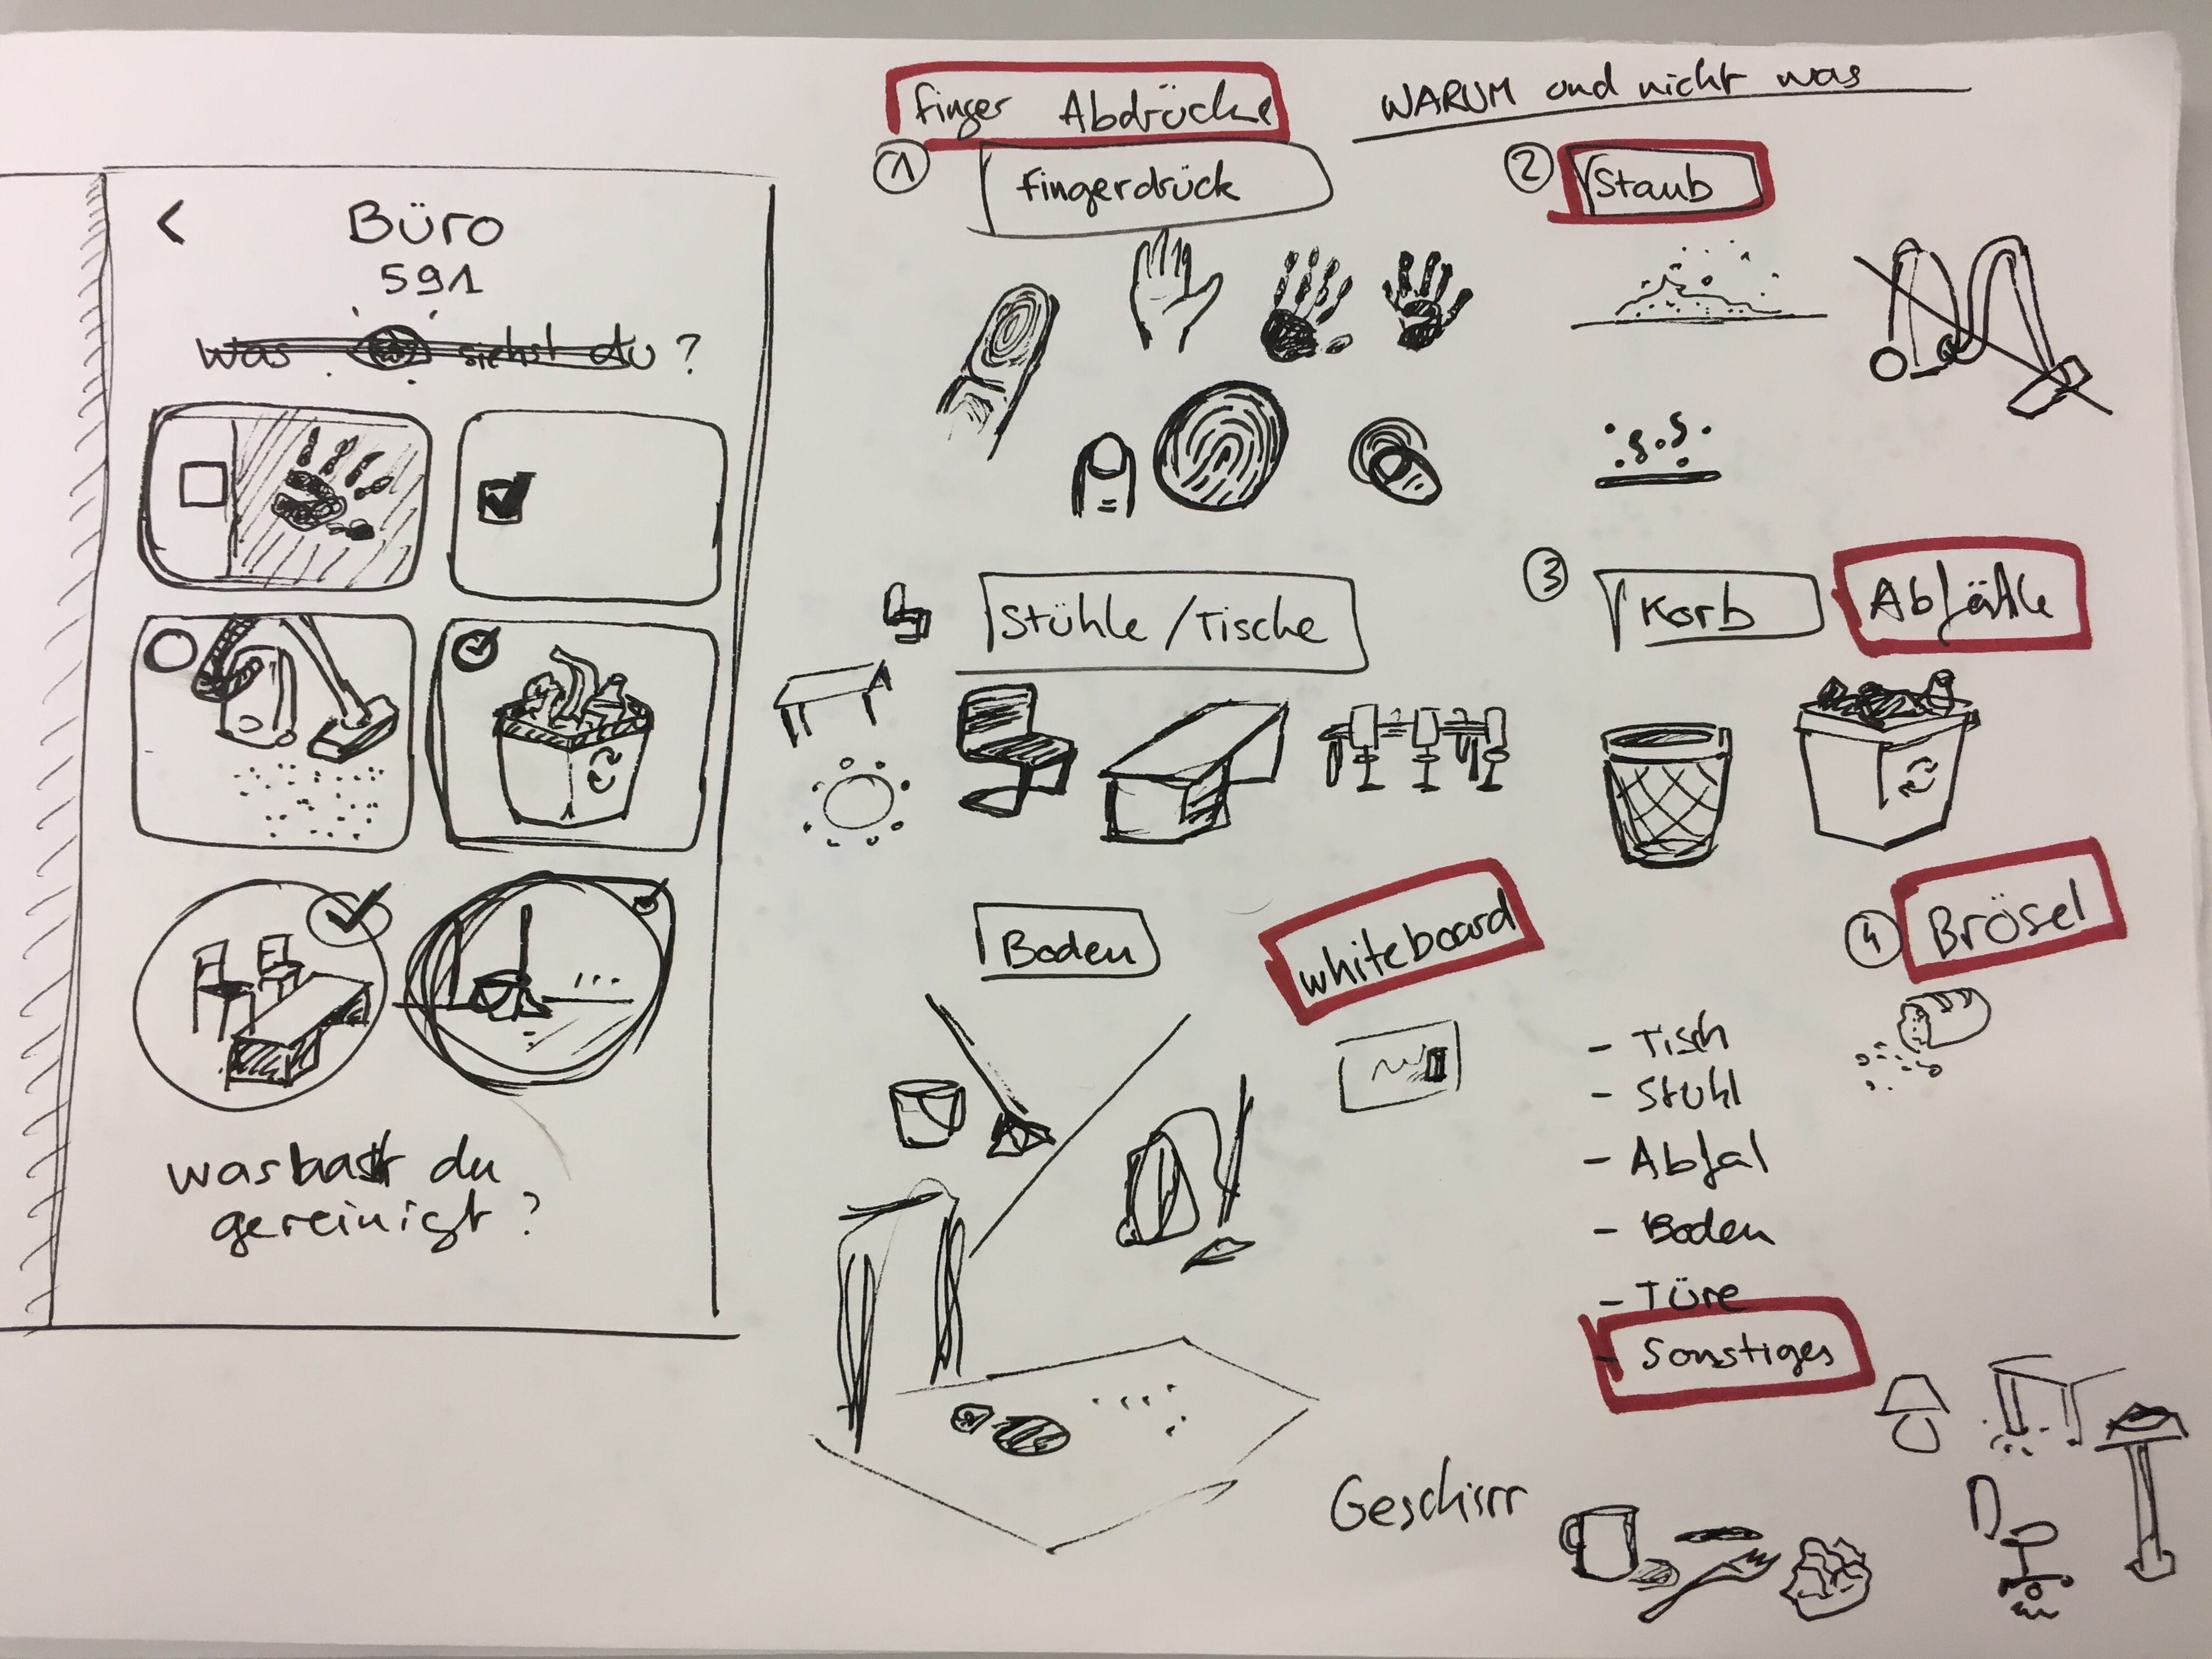 Büro
591
was siehst du?
was hast du
gereinigt?
finger Abdrücke
WARUM und nicht was
1 fingerdrück
2 Staub
Stühle / Tische
3 Korb Abfälle
Boden
whiteboard
4 Brösel
- Tisch
- Stuhl
- Abfal
- Boden
- Türe
- Sonstiges
Geschirr